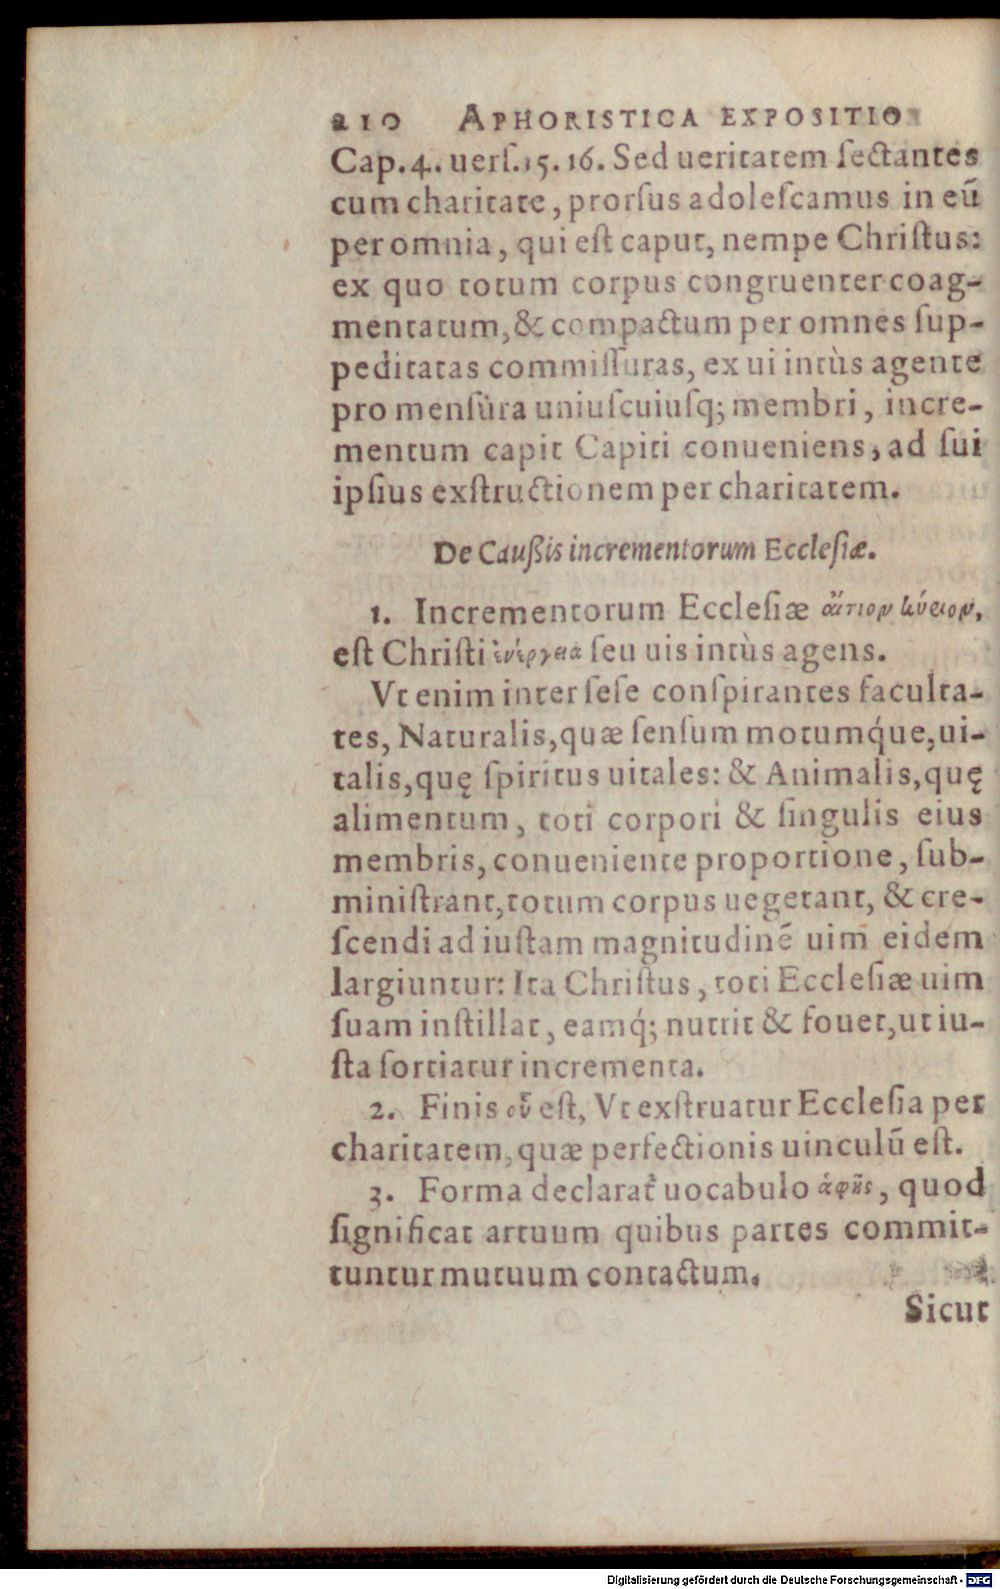 210 APHORISTICA EXPOSITIO
Cap.4. uerſ.15.16. Sed ueritatem ſectantes
cum charitate, prorſus adoleſcamus in eū
per omnia, qui eſt caput, nempe Chriſtus:
ex quo totum corpus congruenter coag-
mentatum, & compactum per omnes ſup-
peditatas commiſſuras, ex ui intùs agente
pro menſura uniuſcuiuſq; membri, incre-
mentum capit Capiti conueniens, ad ſui
ipſius exſtructionem per charitatem.
De Cauſsis incrementorum Eccleſiæ.
1. Incrementorum Eccleſiæ αἴτιον κύριον,
eſt Chriſti ἐνέργεια ſeu uis intùs agens.
Vt enim inter ſeſe conſpirantes faculta-
tes, Naturalis, quæ ſenſum motumq́ue, ui-
talis, quę ſpiritus uitales: & Animalis, quę
alimentum, toti corpori & ſingulis eius
membris, conueniente proportione, ſub-
miniſtrant, totum corpus uegetant, & cre-
ſcendi ad iuſtam magnitudinē uim eidem
largiuntur: Ita Chriſtus, toti Eccleſiæ uim
ſuam inſtillat, eamq́; nutrit & fouet, ut iu-
ſta ſortiatur incrementa.
2. Finis οὗ eſt, Vt exſtruatur Eccleſia per
charitatem, quæ perfectionis uinculū eſt.
3. Forma declarat᷑ uocabulo ἁφῆς, quod
ſignificat artuum quibus partes commit-
tuntur mutuum contactum.
Sicut
Digitalisierung gefördert durch die Deutsche Forschungsgemeinschaft - DFG